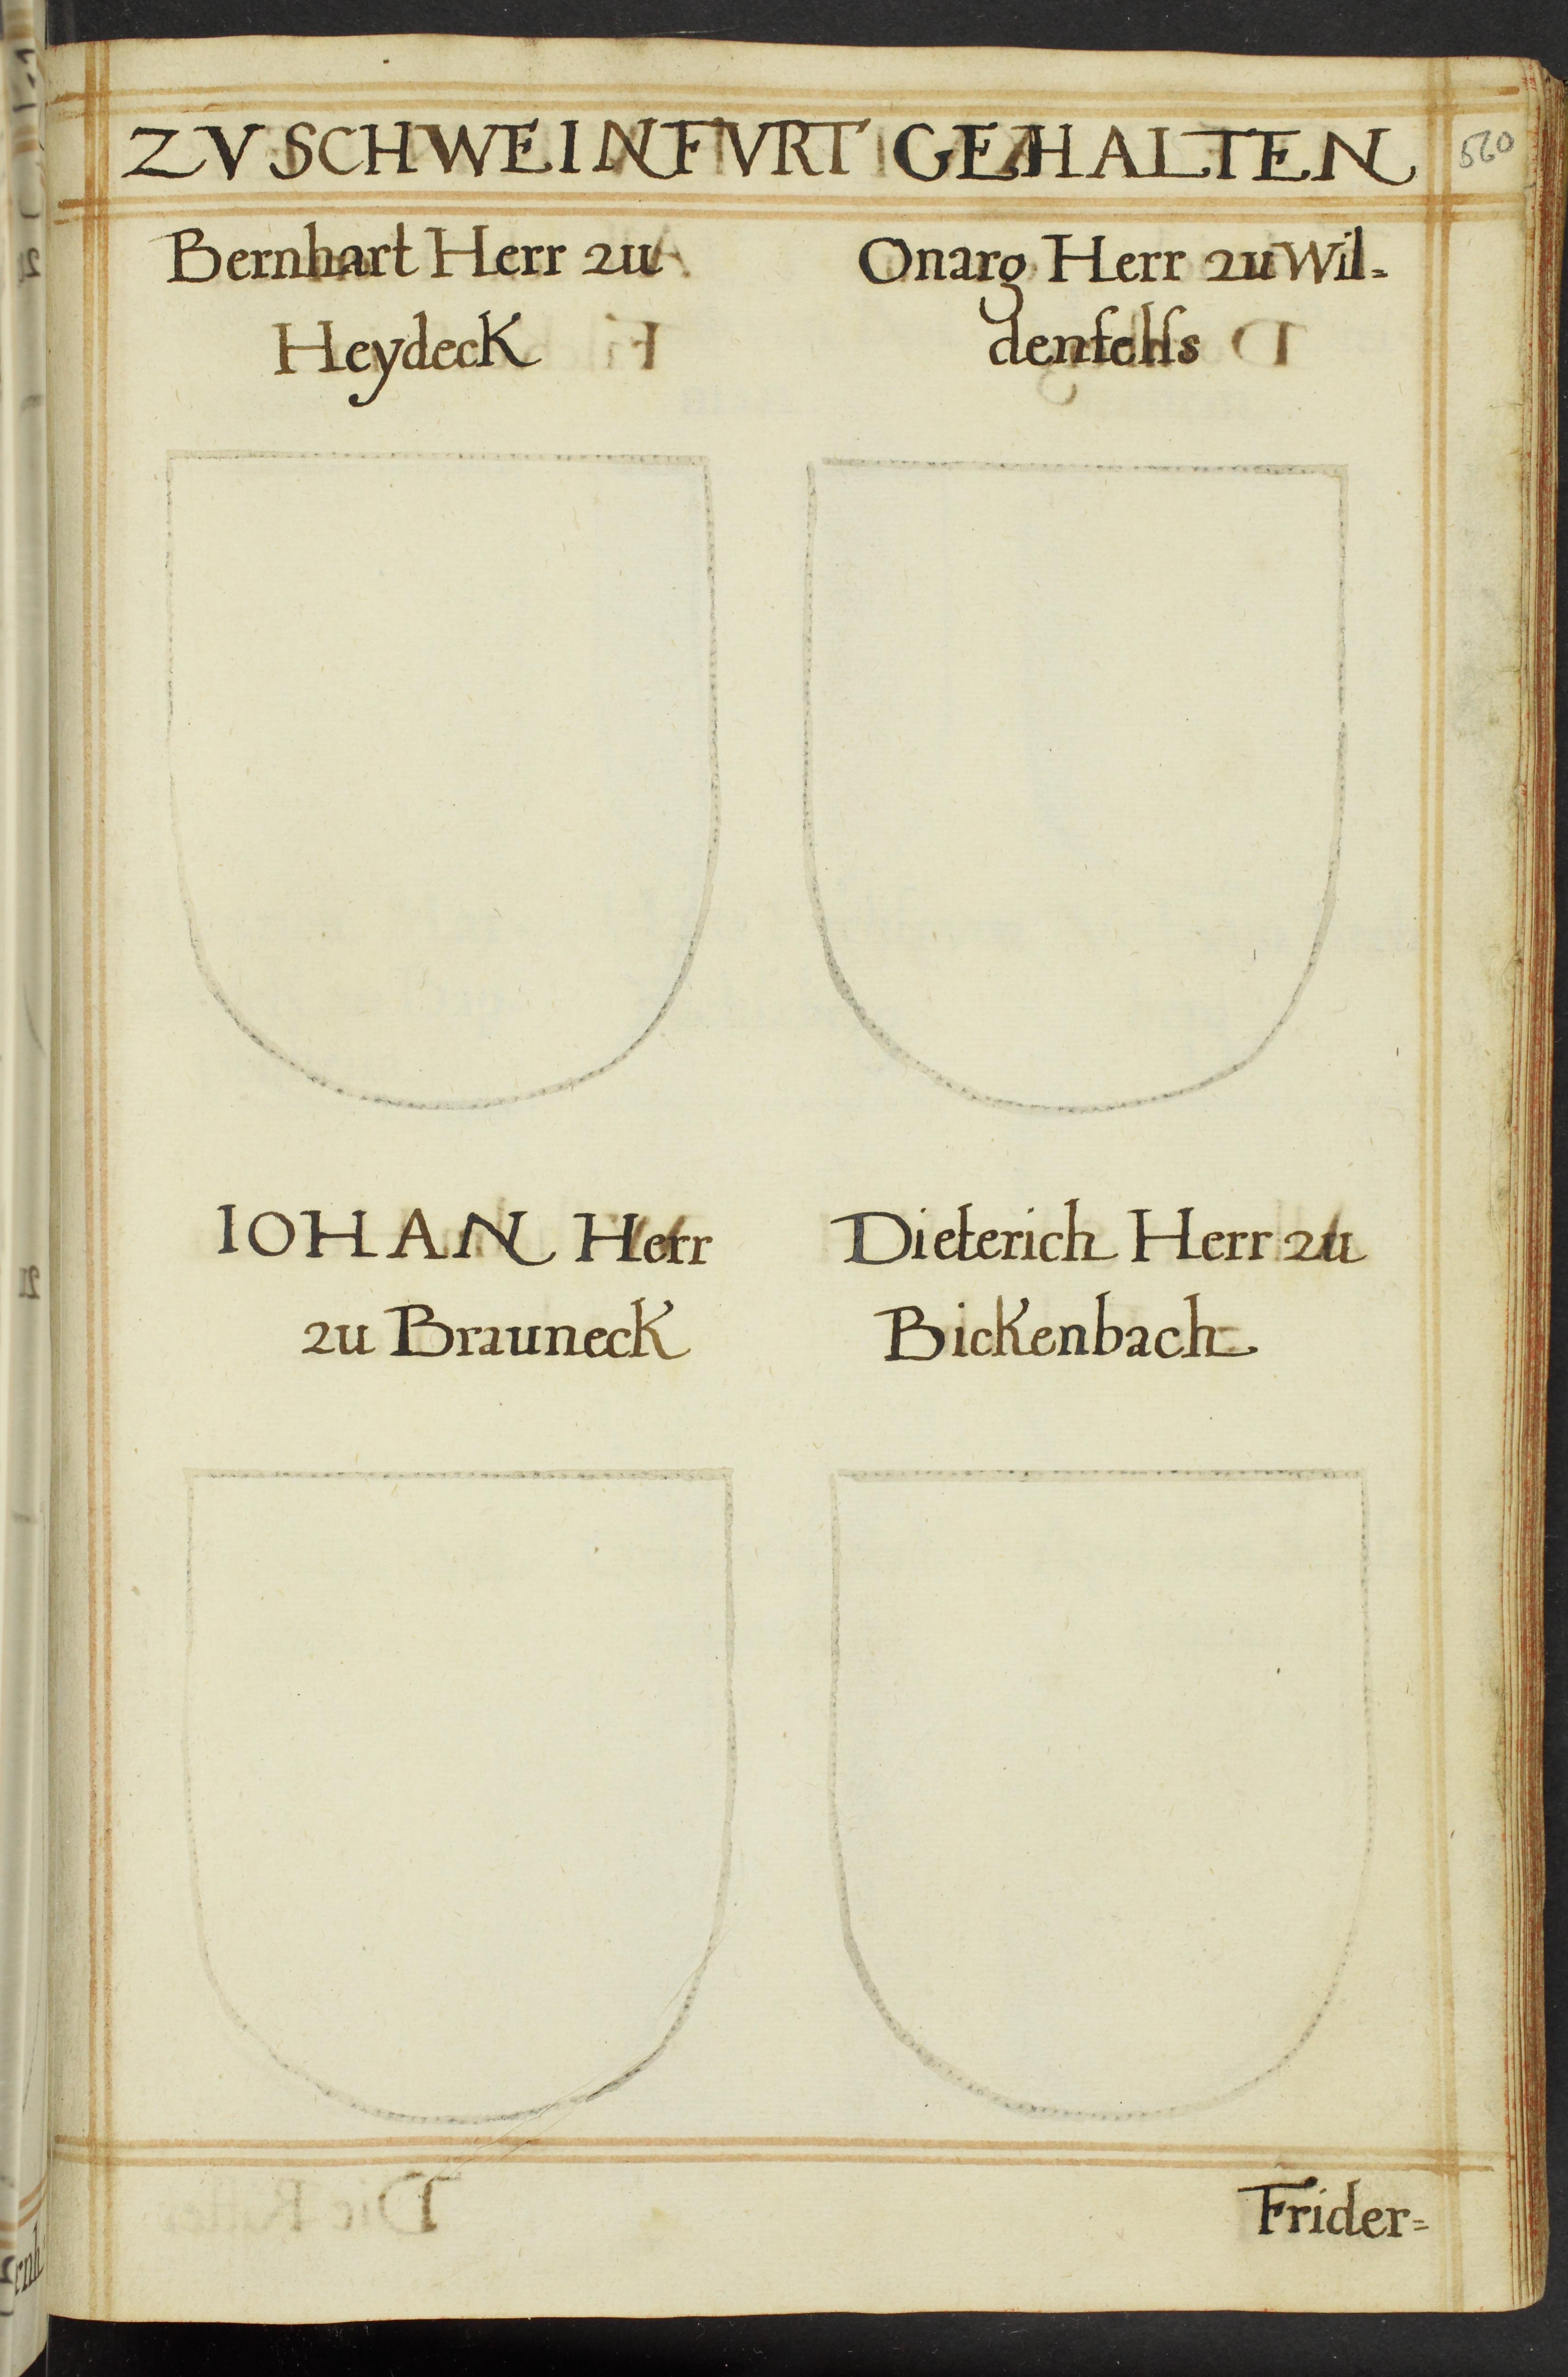 ZV SCHWEINFVRT GEHALTEN
560
Bernhart Herr zu
Heydeck
Onarg Herr zu Wil=
denfelss
IOHAN Herr
zu Brauneck
Dieterich Herr zu
Bickenbach
Frider=